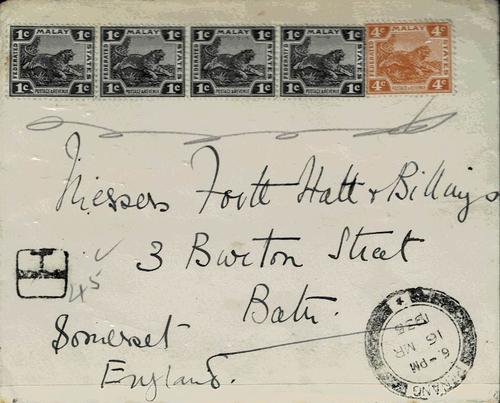 1c MALAY 1c 1c MALAY 1c 1c MALAY 1c 1c MALAY 1c 4c MALAY 4c
FEDERATED STATES FEDERATED STATES FEDERATED STATES FEDERATED STATES FEDERATED STATES
1c POSTAGE & REVENUE 1c 1c POSTAGE & REVENUE 1c 1c POSTAGE & REVENUE 1c 1c POSTAGE & REVENUE 1c 4c POSTAGE & REVENUE 4c
Messrs Hatt & Billings
3 Burton Street
Bath.
Somerset
England.
T
45
PENANG
6 - PM
16 MR